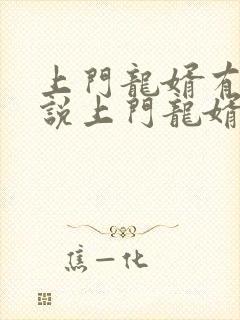 上門龍婿有
說上門龍婿
焦一化